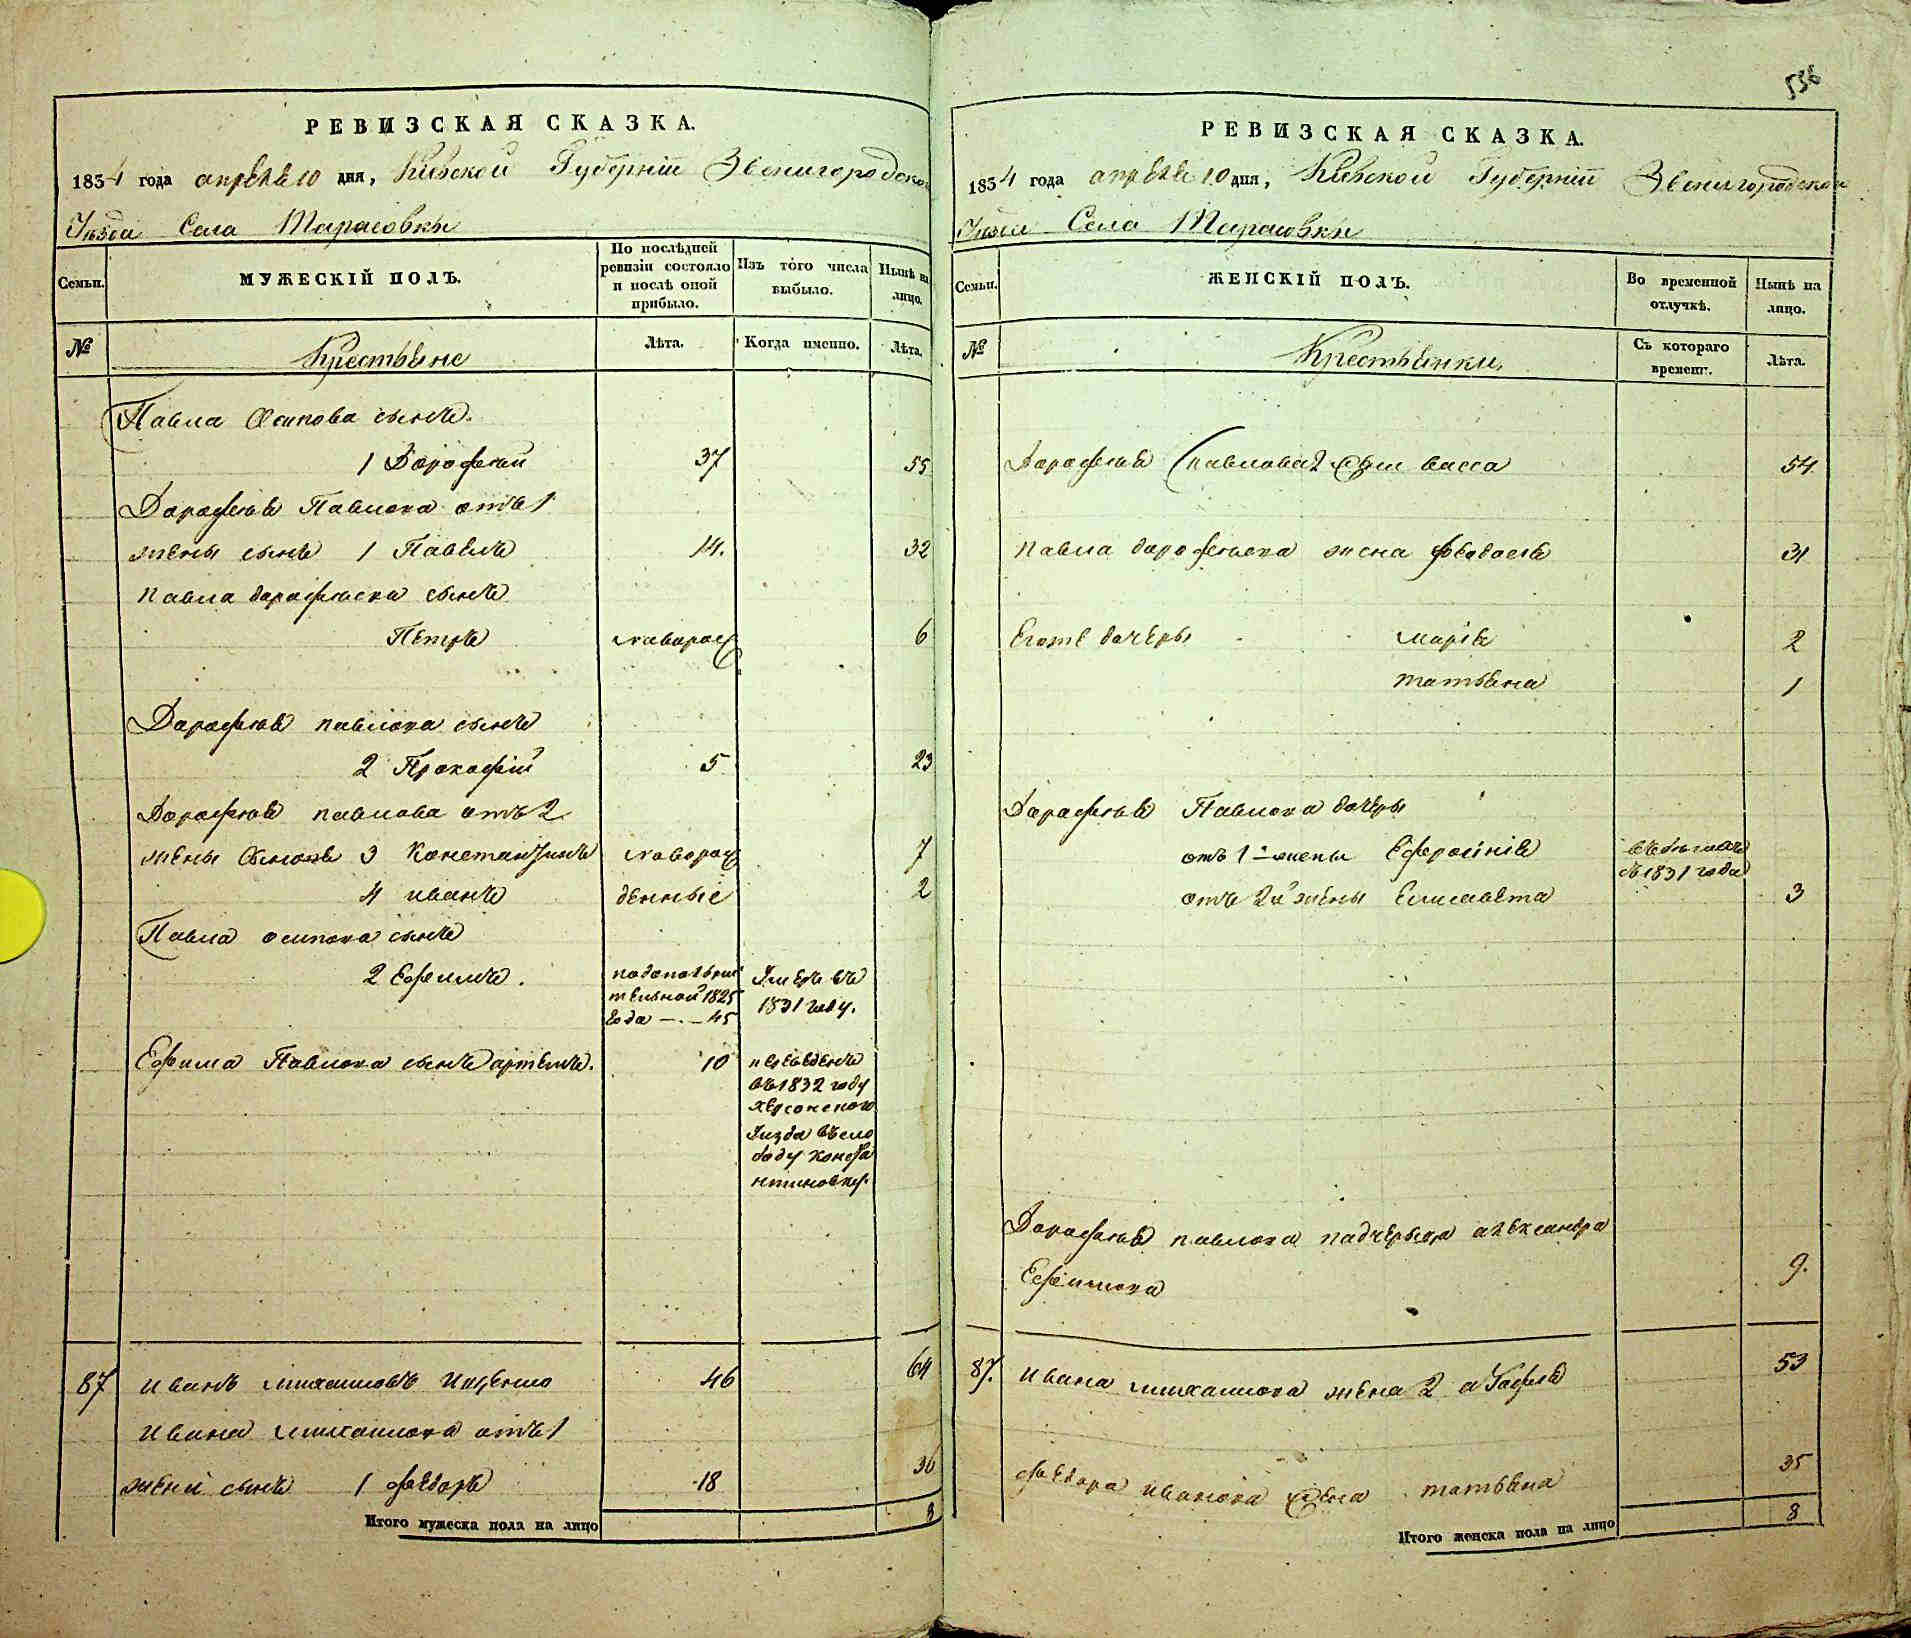 РЕВИЗСКАЯ СКАЗКА.
1834 года апреля 10 дня, Кіевской Губерніи Звенигородскаго
Уезда Села Тарасовки
Семьи.
МУЖЕСКІЙ ПОЛЪ.
По послѣдней ревизіи состояло и послѣ оной прибыло.
Изъ того числа выбыло.
Нынѣ на лицо.
№
Крестьяне
Лѣта.
Когда именно.
Лѣта.
Павла Осипова сынъ
1 Дорофей 37 55
Дорофея Павлова отъ 1
жены сынъ 1 Павелъ 14. 32
Павла дорофеева сынъ
Петръ новорож 6
Дорофея павлова сынъ
2 Прокофій 5 23
Дорофея павлова отъ 2
жены сыновя 3 Константинъ новорож 7
4 иванъ денные 2
Павла осипова сынъ
2 Ефимъ.
подополни
тельной 1825
года — 45
Умеръ въ
1831 году.
Ефима Павлова сынъ артемъ. 10
переведенъ
въ 1832 году
херсонского
уезда въ сло
боду конста
нтиновку.
87 иванъ михаиловъ 46 64
Ивана михаилова отъ 1
жены сынъ 1 федоръ 18 36
Итого мужеска пола на лицо 8
556
РЕВИЗСКАЯ СКАЗКА.
1834 года апреля 10 дня, Кіевской Губерніи Звенигородскаго
Уезда Села Тарасовки
Семьи.
ЖЕНСКІЙ ПОЛЪ.
Во временной отлучкѣ.
Нынѣ на лицо.
№
Крестьянки.
Съ котораго времени.
Лѣта.
Дорофея павлова 2 жена васса 54
павла дорофеева жена феодосия 31
Егоже дочеры марія 2
татьяна 1
Дорофея Павлова дочеры
отъ 1-й жены Ефросинія
въ 1831 года
отъ 2й жены Елисавета 3
Дорофея павлова падчерыца александра
Ефимова 9.
87. ивана михаилова жена 2 агафия 53
федора иванова жена татьяна 35
Итого женска пола на лицо 8